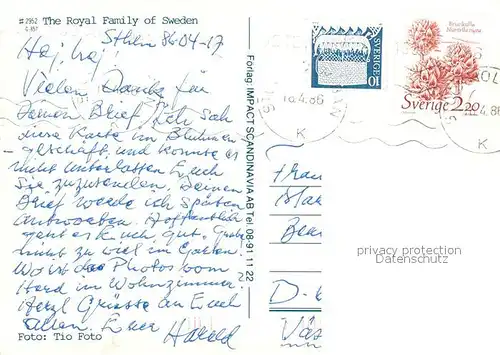 # 2952
G 857
The Royal Family of Sweden
Sthlm 86-04-17
Hej, hej!
Vielen Dank für
Deinen Brief. Ich sah
diese Karte im Blumen-
geschäft, und konnte es
nicht unterlassen Euch
Sie zuzusenden. Deinen
Brief werde ich später
antworten. Hoffentlich
geht es Euch gut.
nicht zu viel im Garten.
Wo ist das Photos vom
Herd im Wohnzimmer.
Herzl Grüsse an Euch
allen. Euer Harald
Foto: Tio Foto
Förlag: IMPACT SCANDINAVIA AB Tel 08-91 11 22
SVERIGE
10
Sverige 2.20
18.4.86
K
4.86
K
Frau
privacy protection
Datenschutz
D-
Väs